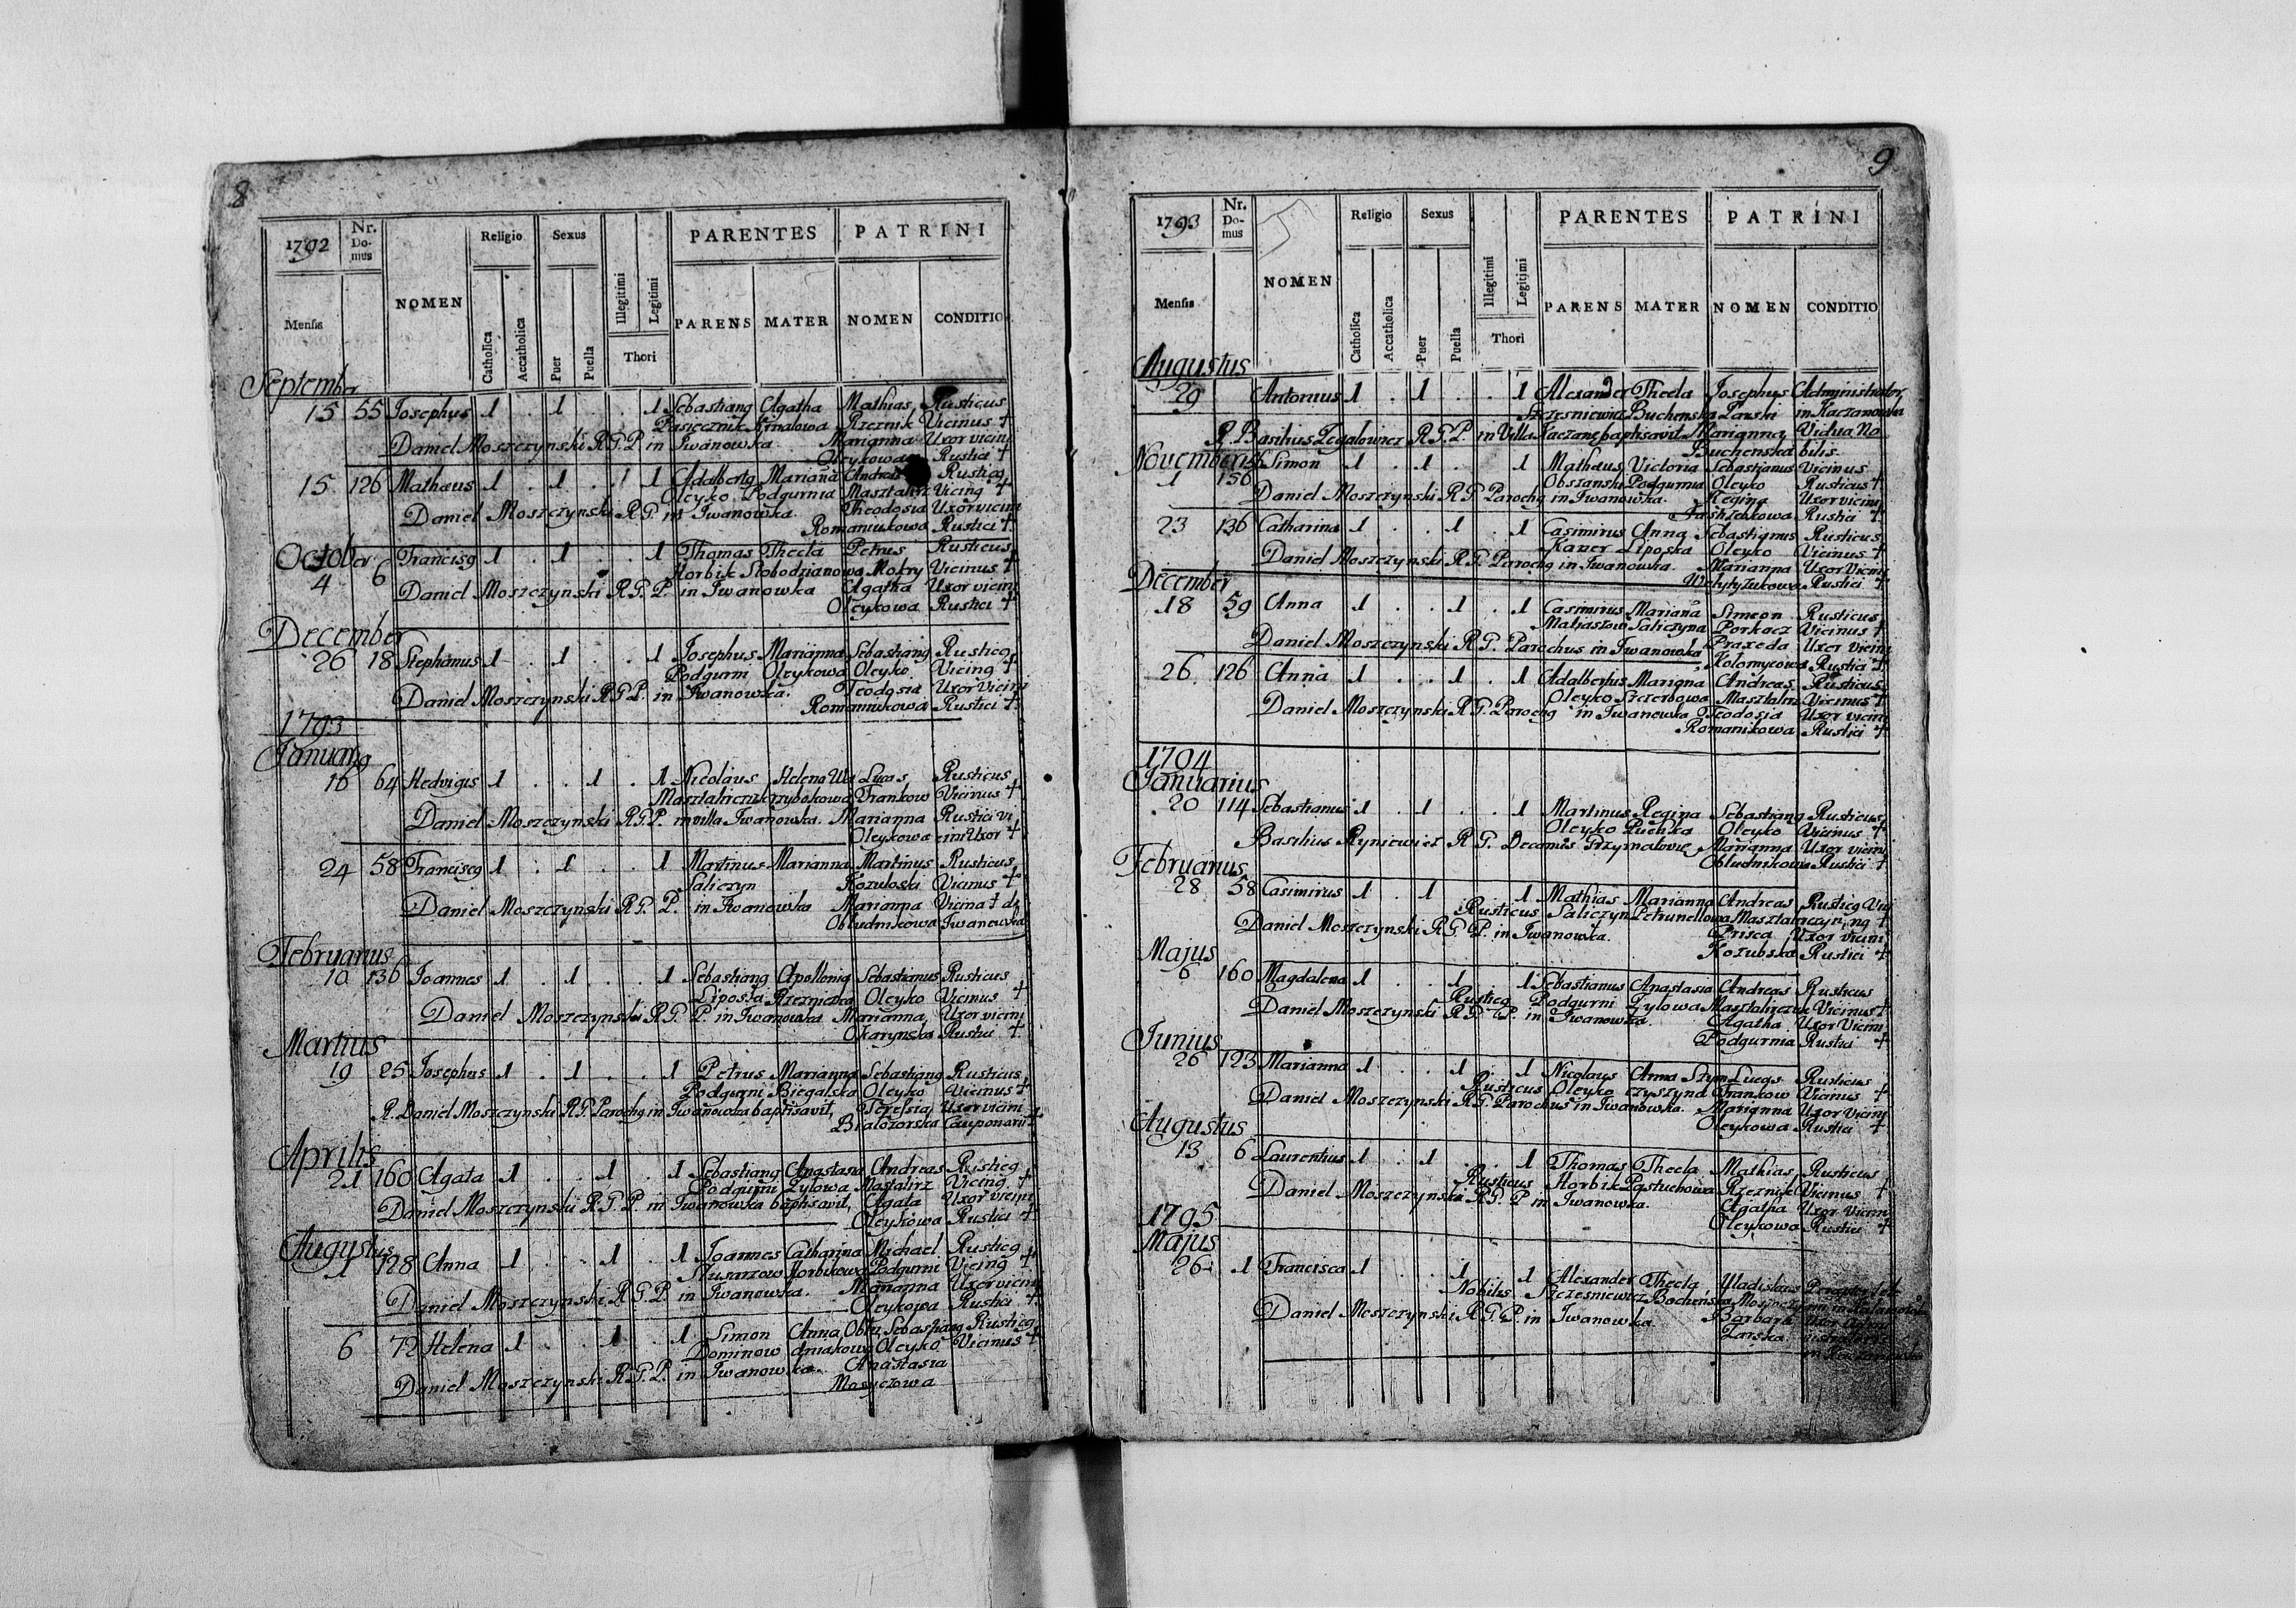 8
1792
Nr. Domus
NOMEN
Religio
Sexus
PARENTES
PATRINI
Mensis
Catholica
Accatholica
Puer
Puella
Illegitimi
Legitimi
Thori
PARENS
MATER
NOMEN
CONDITIO
September
15 55 Josephus 1 . 1 . . 1 Sebastiang Agatha Mathias Rusticus
Pasiecznik Rzeznik Vicinus +
Daniel Moszczynski R.G.P. in Iwanowka. Marianna Uxor vicini
Oleykowa Rustici +
15 126 Mathaus 1 . 1 . 1 1 Adalbertg Mariana Andreas Rusticg
Oleyko Podgurnia Masztalirz Vicing +
Daniel Moszczynski R.G. in Iwanowka. Theodosia Uxor vicini
Romaniukowa Rustici +
October
4 6 Franciscg 1 . 1 . . 1 Thomas Thecla Petrus Rusticus
Horbik Slobodzianowa Mokry Vicinus +
Daniel Moszczynski R.G.P. in Iwanowka Agatha Uxor vicini
Oleykowa Rustici +
December
26 18 Stephanus 1 . 1 . . 1 Josephus Marianna Sebastiang Rusticg
Podgurni Oleykowa Oleyko Vicing +
Daniel Moszczynski R.G.P. in Iwanowka. Teodosia Uxor Vicini
Romaniukowa Rustici +
1793
Januarig
16 64 Hedvigis 1 . . 1 . 1 Nicolaus Helena Lucas Rusticus
Frankow Vicinus +
Daniel Moszczynski R.G.P. in villa Iwanowka. Marianna Rustici vi
Oleykowa cini Uxor +
24 58 Franciscg 1 . 1 . . 1 Martinus Marianna Martinus Rusticus
Saliczyn Kozuloski Vicinus +
Daniel Moszczynski R.G.P. in Iwanowka Marianna Vicina + de
Obludnikowa Iwanowka
Februarius
10 136 Joannes 1 . 1 . . 1 Sebastiang Apollonia Sebastianus Rusticus
Liposki Oleyko Vicinus +
Daniel Moszczynski R.G.P. in Iwanowka Marianna Uxor vicini
Okarynska Rustici +
Martius
19 25 Josephus 1 . 1 . . 1 Petrus Marianna Sebastiang Rusticus
Podgurni Biegalska Oleyko Vicinus +
R. Daniel Moszczynski R.G. Parochg in Iwanowka baptisavit, Teressia Uxor vicini
Bialozorska Cauponarii +
Aprilis
21 160 Agata 1 . . 1 . 1 Sebastiang Anastasia Andreas Rusticg
Podgurni Zytowa Masztalirz Vicing +
Daniel Moszczynski R.G.P. in Iwanowka baptisavit, Agata Uxor vicini
Oleykowa Rustici +
Augustus
1 128 Anna 1 . . 1 . 1 Joannes Catharina Michael Rusticg
Slusarzow Horbikowa Podgurni Vicing +
Daniel Moszczynski R.G.P. in Iwanowka. Marianna Uxor vicini
Oleykowa Rustici +
6 72 Helena 1 . . 1 . 1 Simon Anna Oblu Sebastiang Rusticg
Dominow dniakowa Oleyko Vicinus +
Daniel Moszczynski R.G.P. in Iwanowka. Anastasia
Mosyczowa
9
1793
Nr. Domus
NOMEN
Religio
Sexus
PARENTES
PATRINI
Mensis
Catholica
Accatholica
Puer
Puella
Illegitimi
Legitimi
Thori
PARENS
MATER
NOMEN
CONDITIO
Augustus
29 Antonius 1 . 1 . . 1 Alexander Thecla Josephus Administrator
Szczesniewicz Buchenska Zarski in Kaczanowka
R. Basilius Zegalowicz R.G.P. in Villa Kaczane baptisavit Marianna Vidua No
Buchenska bilis.
November
1 156 Simon 1 . 1 . 1 Mathaus Victoria Sebastianus Vicinus
Obszanski Podgurnia Oleyko Rusticus +
Daniel Moszczynski R.G. Parochg in Iwanowka. Regina Uxor vicini
Rustici +
23 136 Catharina 1 . . 1 . 1 Casimirus Anna Sebastianus Rusticus
Kaner Liposka Oleyko Vicinus +
Daniel Moszczynski R.G. Parochg in Iwanowka. Marianna Uxor Vicini
Rustici +
December
18 59 Anna 1 . . 1 . 1 Casimirus Mariana Simeon Rusticus
Matiaszow Saliczyna Porkocz Vicinus +
Daniel Moszczynski R.G. Parochus in Iwanowka Praxeda Uxor Vicini
Kolomycowa Rustici +
26 126 Anna 1 . . 1 . 1 Adalbertus Marigna Andreas Rusticus
Oleyko Szczerbowa Masztalirz Vicinus +
Daniel Moszczynski R.G. Parochg in Iwanowka Teodosia Uxor vicini
Romanikowa Rustici +
1794
Januarius
20 114 Sebastianus 1 . 1 . . 1 Martinus Regina Sebastiang Rusticus
Oleyko Puchka Oleyko Vicinus +
Basilius Ryniewicz R.G. Decanus Grzymalovie Marianna Uxor vicini
Obludnikowa Rustici +
Februarius
28 58 Casimirus 1 . 1 1 Mathias Marianna Andreas Rusticg Vici
Rusticus Saliczyn Petrunellowa Masztalirczyn ng +
Daniel Moszczynski R.G.P. in Iwanowka. Prisca Uxor Vicini
Kozubska Rustici +
Majus
6 160 Magdalena 1 . . 1 1 Sebastianus Anastasia Andreas Rusticus
Rusticg Podgurni Zytowa Masztalirczuk Vicinus +
Daniel Moszczynski R.G.P. in Iwanowka. Agatha Uxor Vicini
Podgurnia Rustici +
Junius
26 123 Marianna 1 . . 1 . 1 Nicolaus Anna Szym Lucas Rusticus
Rusticus Oleyko czyszyna Frankow Vicinus +
Daniel Moszczynski R.G. Parochus in Iwanowka. Marianna Uxor Vicini
Oleykowa Rustici +
Augustus
13 6 Laurentius 1 . 1 . 1 Thomas Thecla Mathias Rusticus
Rusticus Horbik Pastuchowa Rzeznik Vicinus +
Daniel Moszczynski R.G.P. in Iwanowka. Agatha Uxor Vicini
Oleykowa Rustici +
1795
Majus
26 1 Francisca 1 . . 1 1 Alexander Thecla Uladislaus
Nobilis Szczesniewicz Bochenska
Daniel Moszczynski R.G.P. in Iwanowka. Barbara Uxor
Zarska
in Kaczanowka